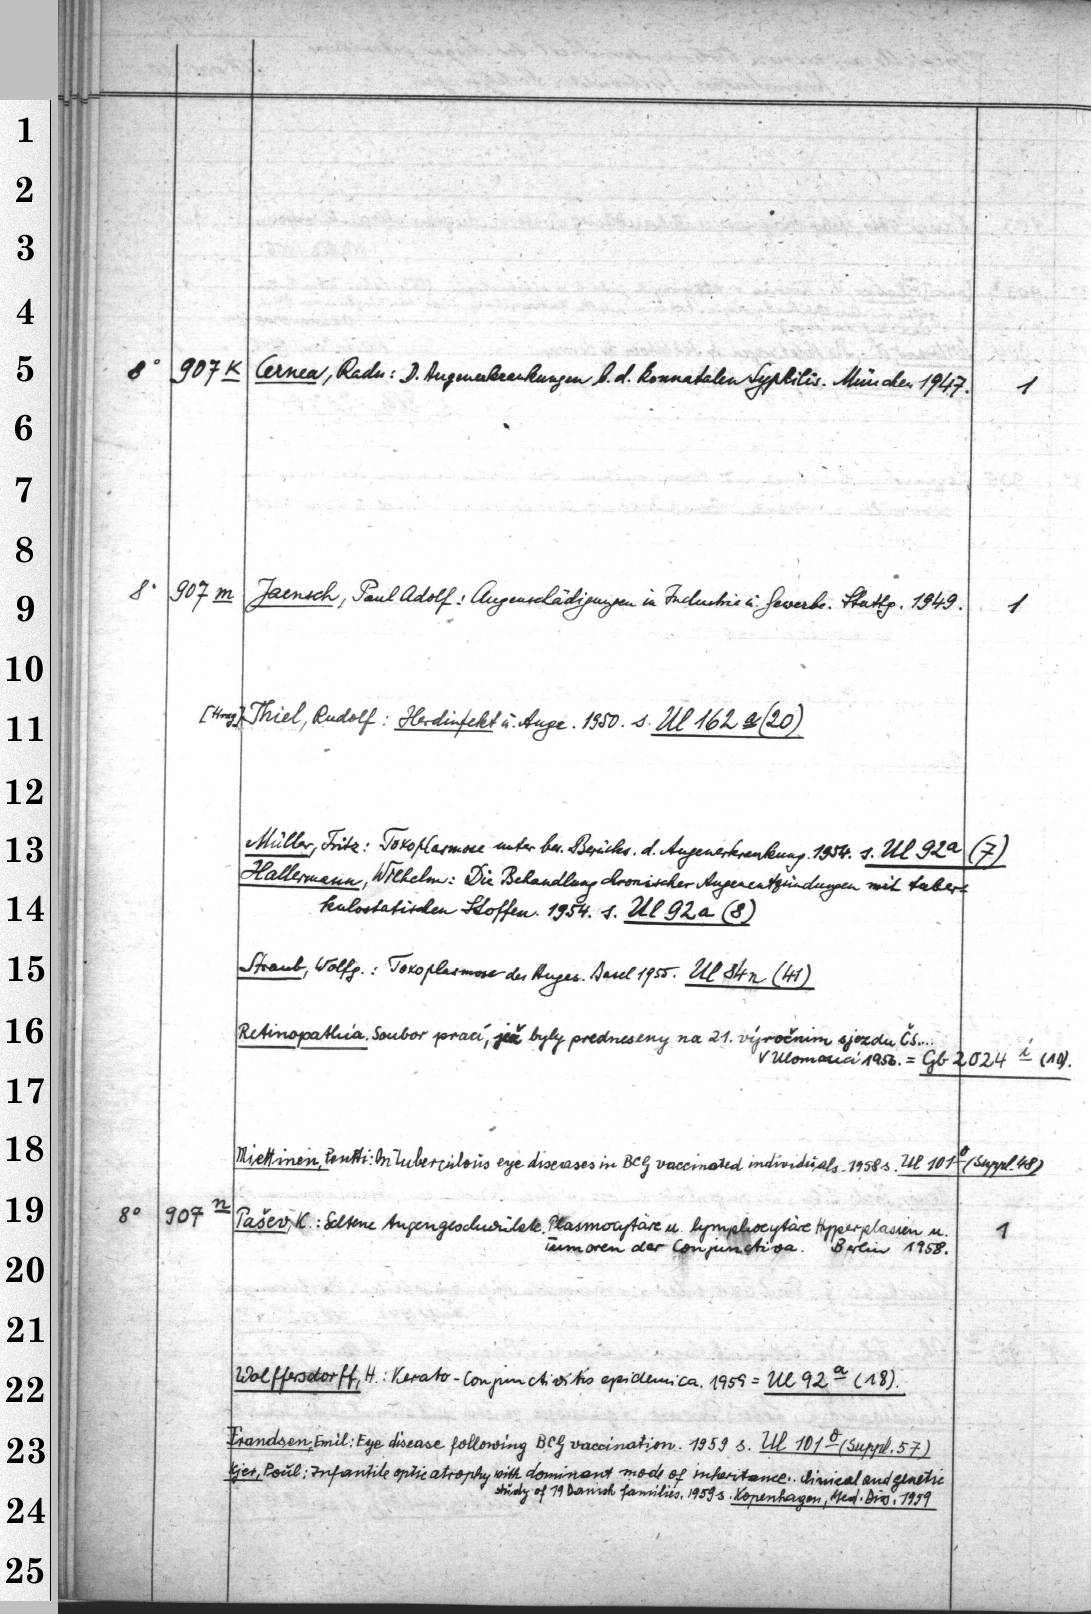 1
2
3
4
5
8° 907 K Cernea, Radu: D. Augenerkrankungen b. d. konnatalen Syphilis. München 1947. 1
6
7
8
9
8° 907 m Jaensch, Paul Adolf: Augenschädigungen in Industrie u. Gewerbe. Stuttg. 1949. 1
10
11
[Hrsg] Thiel, Rudolf: Herdinfekt u. Auge. 1950. s. Ul 162 (20)
12
13
Müller, Fritz: Toxoplasmose unter bes. Berücks. d. Augenerkrankung. 1954. s. Ul 92a (7)
Hallermann, Wilhelm: Die Behandlung chronischer Augenentzündungen mit tuber=
14
kulostatischen Stoffen. 1954. s. Ul 92a (8)
15
Straub, Wolfg.: Toxoplasmose des Auges. Basel 1955. Ul 84n (41)
16
Retinopathia. Soubor prací, jež byly předneseny na 21. výročním sjezdu Čs....
v Olomouci 1956. = Gb 2024 i (10).
17
18
Miettinen, Pentti: On tuberculous eye diseases in BCG vaccinated individuals. 1958 s. Ul 101 (Suppl. 48)
19
8° 907 n Pašev, K.: Seltene Augengeschwülste. Plasmocytäre u. lymphocytäre Hyperplasien u. 1
Tumoren der Conjunctiva. Berlin 1958.
20
21
22
Wolffersdorff, H.: Kerato-Conjunctivitis epidemica. 1959 = Ul 92 a (18).
23
Frandsen, Emil: Eye disease following BCG vaccination. 1959 s. Ul 101 (Suppl. 57)
Kjer, Poul: Infantile optic atrophy with dominant mode of inheritance. clinical and genetic
24
study of 19 Danish families. 1959 s. Kopenhagen, Med. Diss. 1959
25